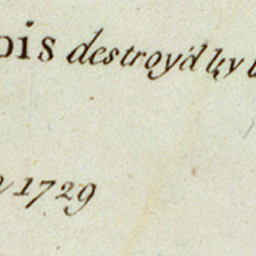 ois destroy'd by
1729